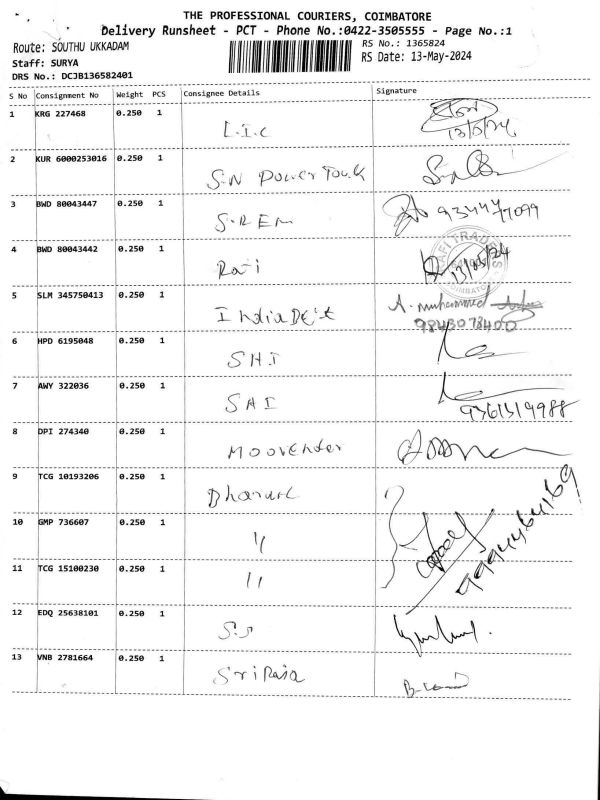 THE PROFESSIONAL COURIERS, COIMBATORE
Delivery Runsheet - PCT - Phone No.:0422-3505555 - Page No.:1
Route: SOUTHU UKKADAM
RS No.: 1365824
Staff: SURYA
RS Date: 13-May-2024
DRS No.: DCJB136582401
S No Consignment No Weight PCS Consignee Details Signature
1 KRG 227468 0.250 1
L.I.C 13/5/24
2 KUR 6000253016 0.250 1
S.N Power Touk
3 BWD 80043447 0.250 1
S.R.Em
4 BWD 80043442 0.250 1
RAFI TRADERS
13/05/24
5 SLM 345750413 0.250 1
A. muhammed
9843078400
6 HPD 6195048 0.250 1
SHI
7 AWY 322036 0.250 1
SAI
8 DPI 274340 0.250 1
Moovender
9 TCG 10193206 0.250 1
10 GMP 736607 0.250 1
"
11 TCG 15100230 0.250 1
"
9994464169
12 EDQ 25638101 0.250 1
S.S
13 VNB 2781664 0.250 1
Sri Raja